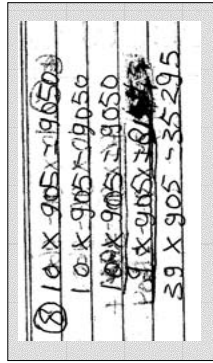 ⑧ 10 x 905 = 9050
10 x 905 = 9050
+ 10 x 905 = 9050
9 x 905 =
39 x 905 = 35295